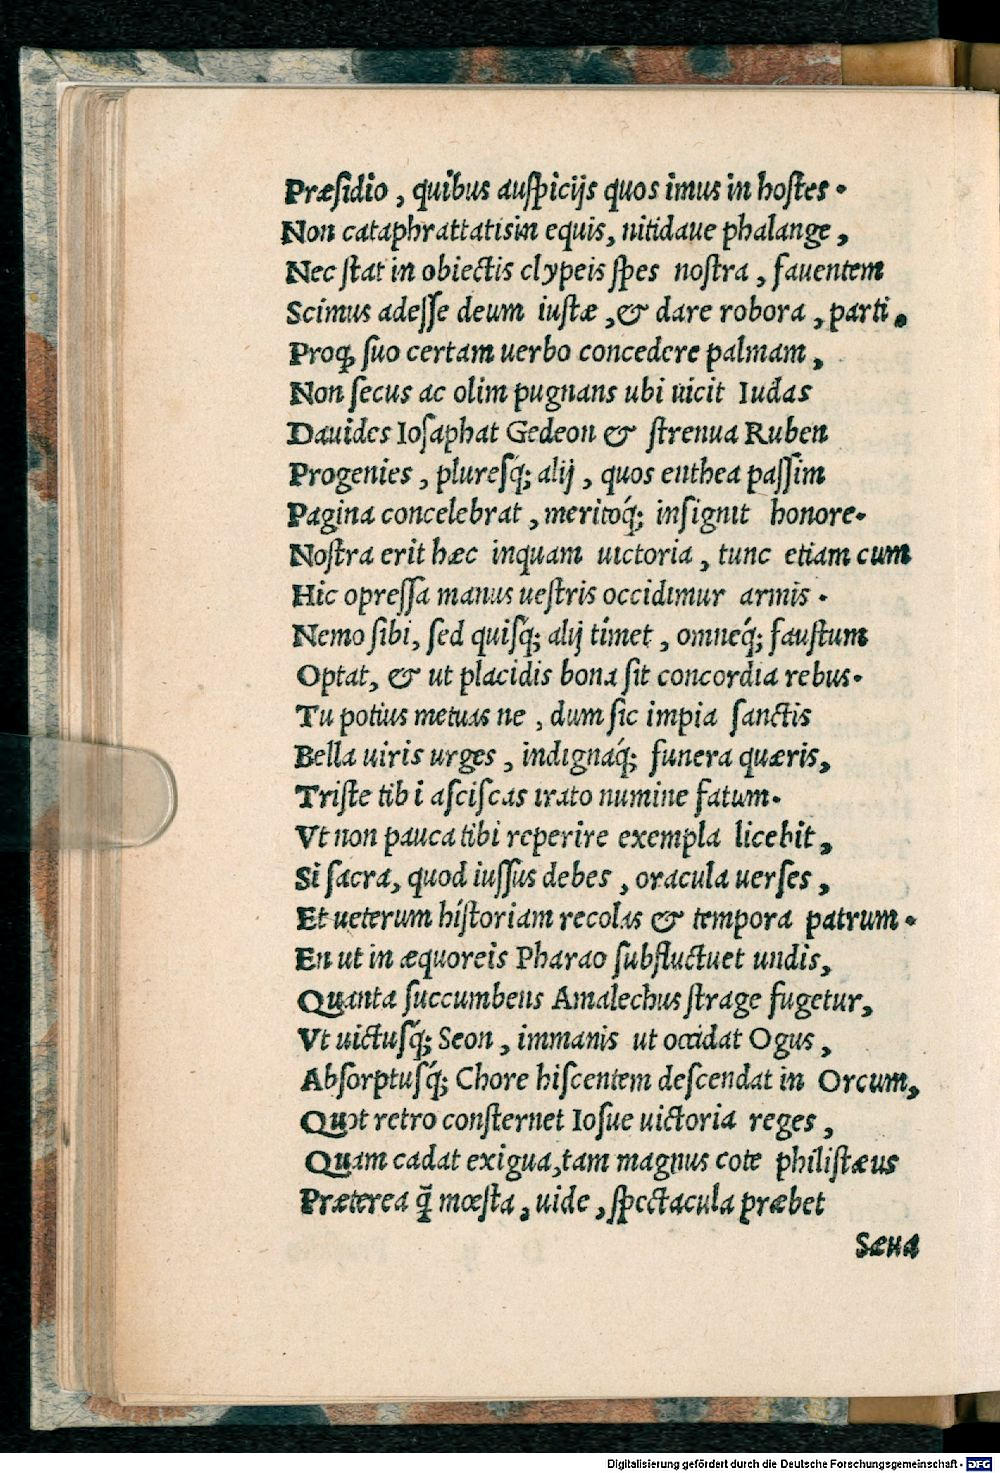 Præſidio, quibus auſpicijs quos imus in hoſtes.
Non cataphrattatisin equis, nitidaue phalange,
Nec ſtat in obiectis clypeis ſpes noſtra, fauentem
Scimus adeſſe deum iuſtæ, & dare robora, parti.
Proqꝫ ſuo certam uerbo concedere palmam,
Non ſecus ac olim pugnans ubi uicit Iudas
Dauides Ioſaphat Gedeon & ſtrenua Ruben
Progenies, pluresq́; alij, quos enthea paſſim
Pagina concelebrat, meritoq́; inſignit honore.
Noſtra erit hæc inquam uictoria, tunc etiam cum
Hic opreſſa manus ueſtris occidimur armis.
Nemo ſibi, ſed quiſq́; alij timet, omneq́; fauſtum
Optat, & ut placidis bona ſit concordia rebus.
Tu potius metuas ne, dum ſic impia ſanctis
Bella uiris urges, indignaq́; funera quæris,
Triſte tibi aſciſcas irato numine fatum.
Vt non pauca tibi reperire exempla licebit,
Si ſacra, quod iuſſus debes, oracula uerſes,
Et ueterum hiſtoriam recolas & tempora patrum.
En ut in æquoreis Pharao ſubfluctuet undis,
Quanta ſuccumbens Amalechus ſtrage fugetur,
Vt uictuſq́; Seon, immanis ut occidat Ogus,
Abſorptuſq́; Chore hiſcentem deſcendat in Orcum,
Quot retro conſternet Ioſue uictoria reges,
Quam cadat exigua, tam magnus cote philiſtæus
Præterea q̃ mœſta, uide, ſpectacula præbet
Sæua
Digitalisierung gefördert durch die Deutsche Forschungsgemeinschaft - DFG